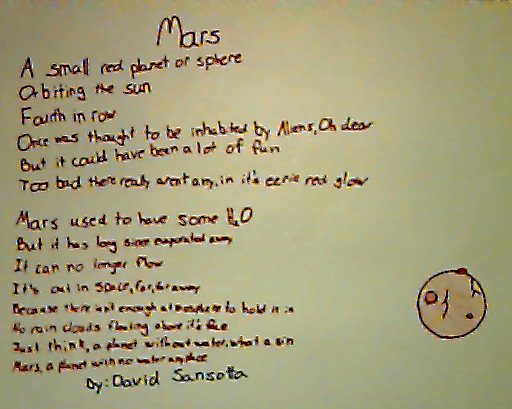 Mars
A small red planet or sphere
Orbiting the sun
Fourth in row
Once was thought to be inhabited by Aliens, Oh dear
But it could have been a lot of fun
Too bad there really arent any, in it's eerie red glow
Mars used to have some H2O
But it has long since evaporated away
It can no longer flow
It's out in space, far, far away
Because there isn't enough atmosphere to hold it in
No rain clouds floating above it's face
Just think, a planet without water, what a sin
Mars, a planet with no water anyplace
by: David Sansotta